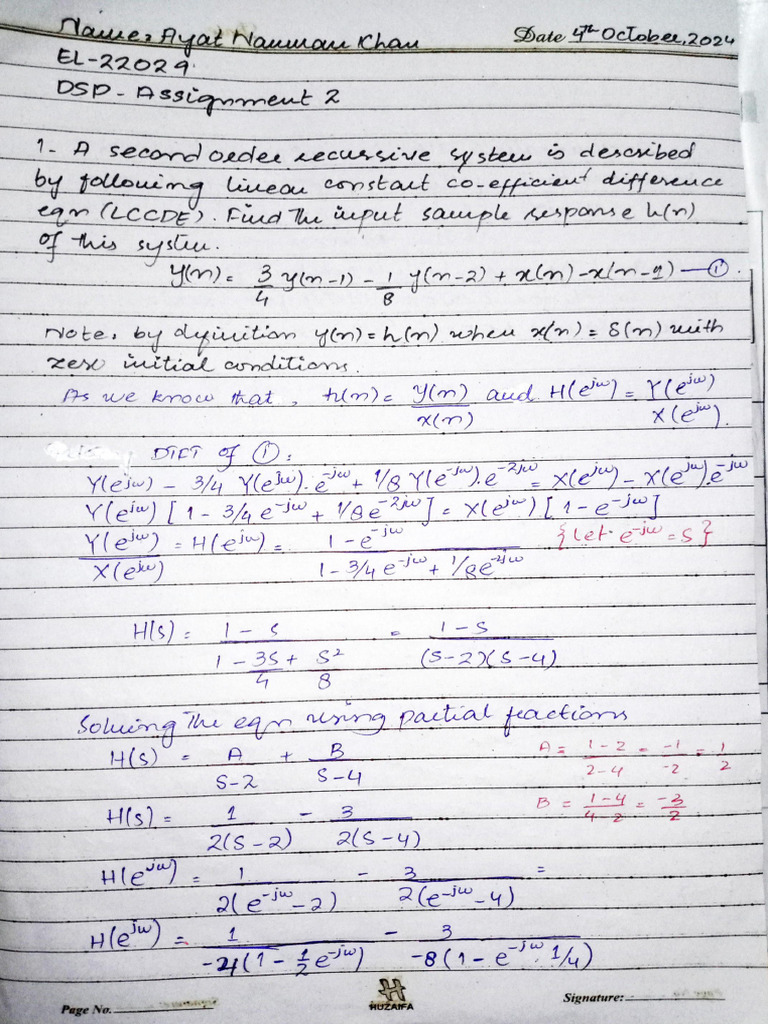 Name: Ayat Nauman Khan Date 4th October, 2024
EL-22029
DSP - Assignment 2
1- A second order recursive system is described
by following linear constant co-efficient difference
eqn (LCCDE). Find the input sample response h(n)
of this system.
y(n) = 3/4 y(n-1) - 1/8 y(n-2) + x(n) - x(n-1) — ①.
Note, by definition y(n) = h(n) when x(n) = δ(n) with
zero initial conditions.
As we know that, h(n) = y(n)/x(n) and H(e^jω) = Y(e^jω)/X(e^jω).
DTFT of ①:
Y(e^jω) - 3/4 Y(e^jω).e^-jω + 1/8 Y(e^-jω).e^-2jω = X(e^jω) - X(e^jω).e^-jω
Y(e^jω) [1 - 3/4 e^-jω + 1/8 e^-2jω] = X(e^jω) [1 - e^-jω]
Y(e^jω)/X(e^jω) = H(e^jω) = 1 - e^-jω / 1 - 3/4 e^-jω + 1/8 e^-2jω {Let e^-jω = s}
H(s) = 1 - s / 1 - 3s/4 + s²/8 = 1 - s / (s-2)(s-4)
Solving the eqn using partial fractions
H(s) = A/s-2 + B/s-4 A = 1-2/2-4 = -1/-2 = 1/2
H(s) = 1/2(s-2) - 3/2(s-4) B = 1-4/4-2 = -3/2
H(e^jω) = 1/2(e^-jω - 2) - 3/2(e^-jω - 4) =
H(e^jω) = 1/-4(1 - 1/2 e^-jω) - 3/-8(1 - e^-jω . 1/4)
Page No. HUZAIFA Signature: